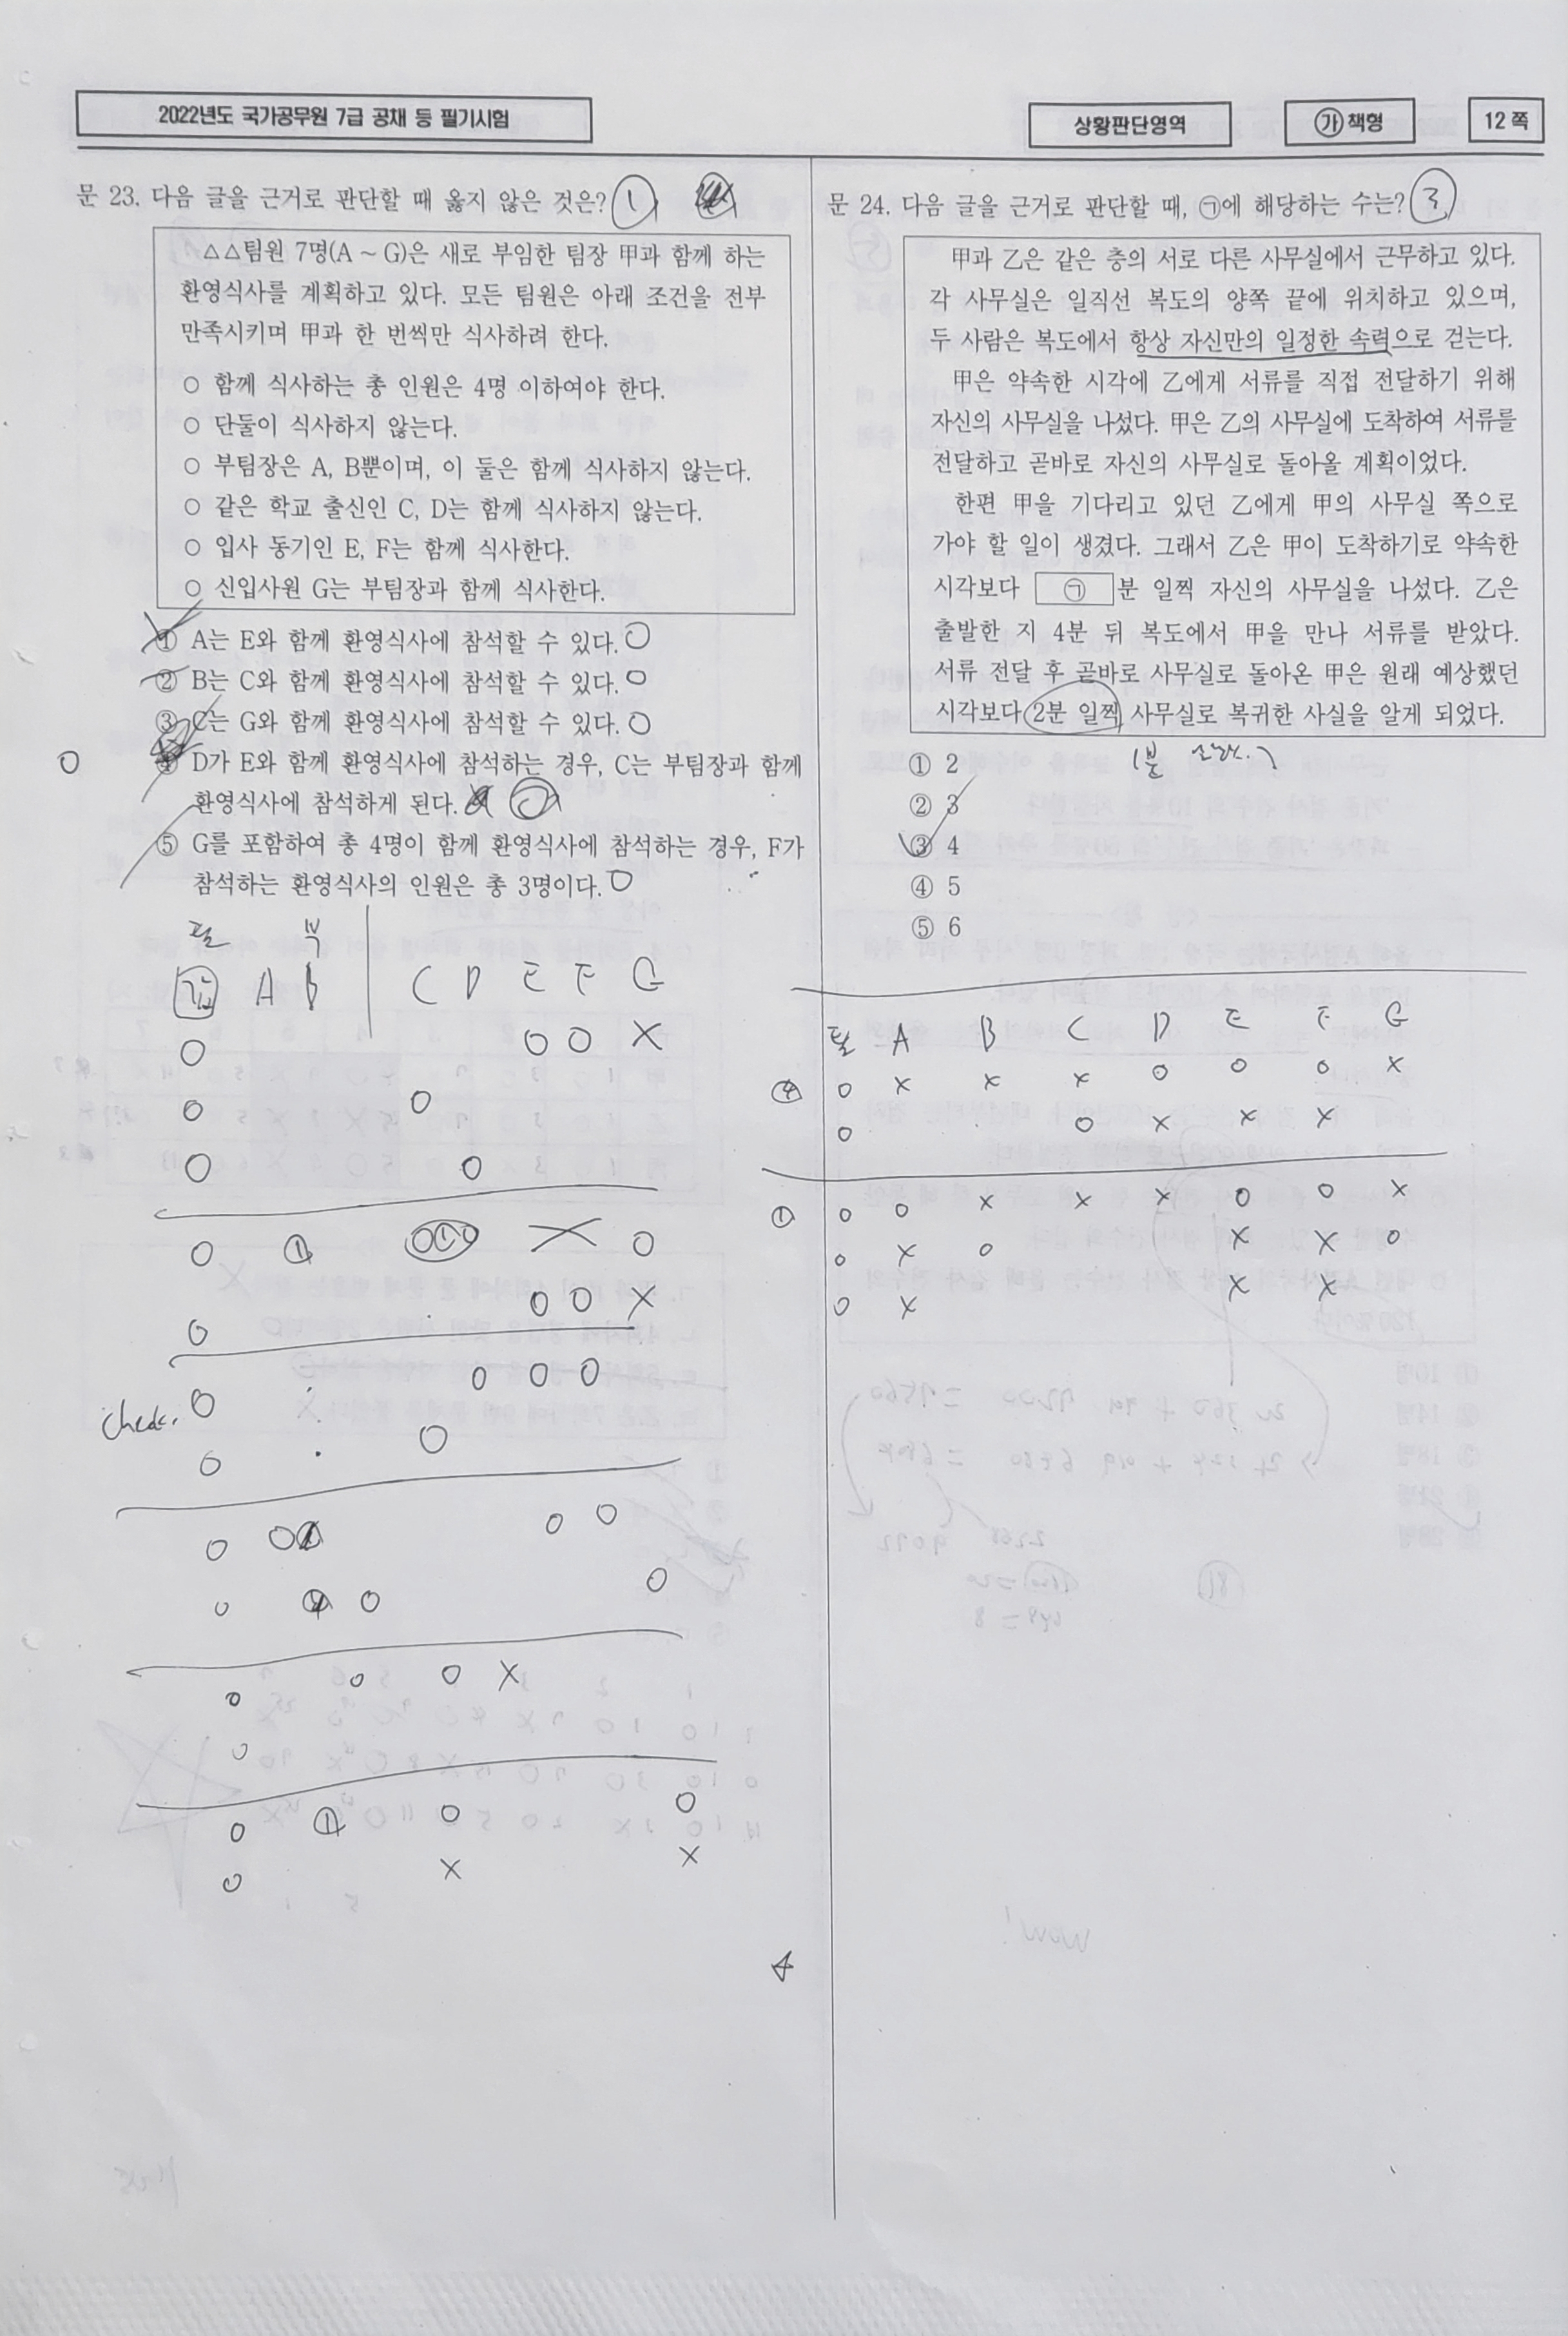 2022년도 국가공무원 7급 공채 등 필기시험
상황판단영역
㉮ 책형
12 쪽
문 23. 다음 글을 근거로 판단할 때 옳지 않은 것은? ①
△△팀원 7명(A ~ G)은 새로 부임한 팀장 甲과 함께 하는
환영식사를 계획하고 있다. 모든 팀원은 아래 조건을 전부
만족시키며 甲과 한 번씩만 식사하려 한다.
○ 함께 식사하는 총 인원은 4명 이하여야 한다.
○ 단둘이 식사하지 않는다.
○ 부팀장은 A, B뿐이며, 이 둘은 함께 식사하지 않는다.
○ 같은 학교 출신인 C, D는 함께 식사하지 않는다.
○ 입사 동기인 E, F는 함께 식사한다.
○ 신입사원 G는 부팀장과 함께 식사한다.
① A는 E와 함께 환영식사에 참석할 수 있다. O
② B는 C와 함께 환영식사에 참석할 수 있다. O
③ C는 G와 함께 환영식사에 참석할 수 있다. O
O ④ D가 E와 함께 환영식사에 참석하는 경우, C는 부팀장과 함께
환영식사에 참석하게 된다. O
⑤ G를 포함하여 총 4명이 함께 환영식사에 참석하는 경우, F가
참석하는 환영식사의 인원은 총 3명이다. O
필 부
갑 A B C D E F G
O O O X
O O
O O
O ① O O
O O O X
O O O O
check.
O O
O O O O
O O O
O O O X
O
O ① O O
O X X
문 24. 다음 글을 근거로 판단할 때, ㉠에 해당하는 수는? 3
甲과 乙은 같은 층의 서로 다른 사무실에서 근무하고 있다.
각 사무실은 일직선 복도의 양쪽 끝에 위치하고 있으며,
두 사람은 복도에서 항상 자신만의 일정한 속력으로 걷는다.
甲은 약속한 시각에 乙에게 서류를 직접 전달하기 위해
자신의 사무실을 나섰다. 甲은 乙의 사무실에 도착하여 서류를
전달하고 곧바로 자신의 사무실로 돌아올 계획이었다.
한편 甲을 기다리고 있던 乙에게 甲의 사무실 쪽으로
가야 할 일이 생겼다. 그래서 乙은 甲이 도착하기로 약속한
시각보다 ㉠ 분 일찍 자신의 사무실을 나섰다. 乙은
출발한 지 4분 뒤 복도에서 甲을 만나 서류를 받았다.
서류 전달 후 곧바로 사무실로 돌아온 甲은 원래 예상했던
시각보다 2분 일찍 사무실로 복귀한 사실을 알게 되었다.
1분
① 2
② 3
③ 4
④ 5
⑤ 6
필 A B C D E F G
④ O X X X O O O X
O O X X X
① O O X X X O O X
O X O X X O
O X X X
4